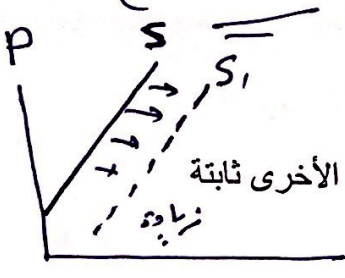 P
S
S₁
الأخرى ثابتة
زيادة